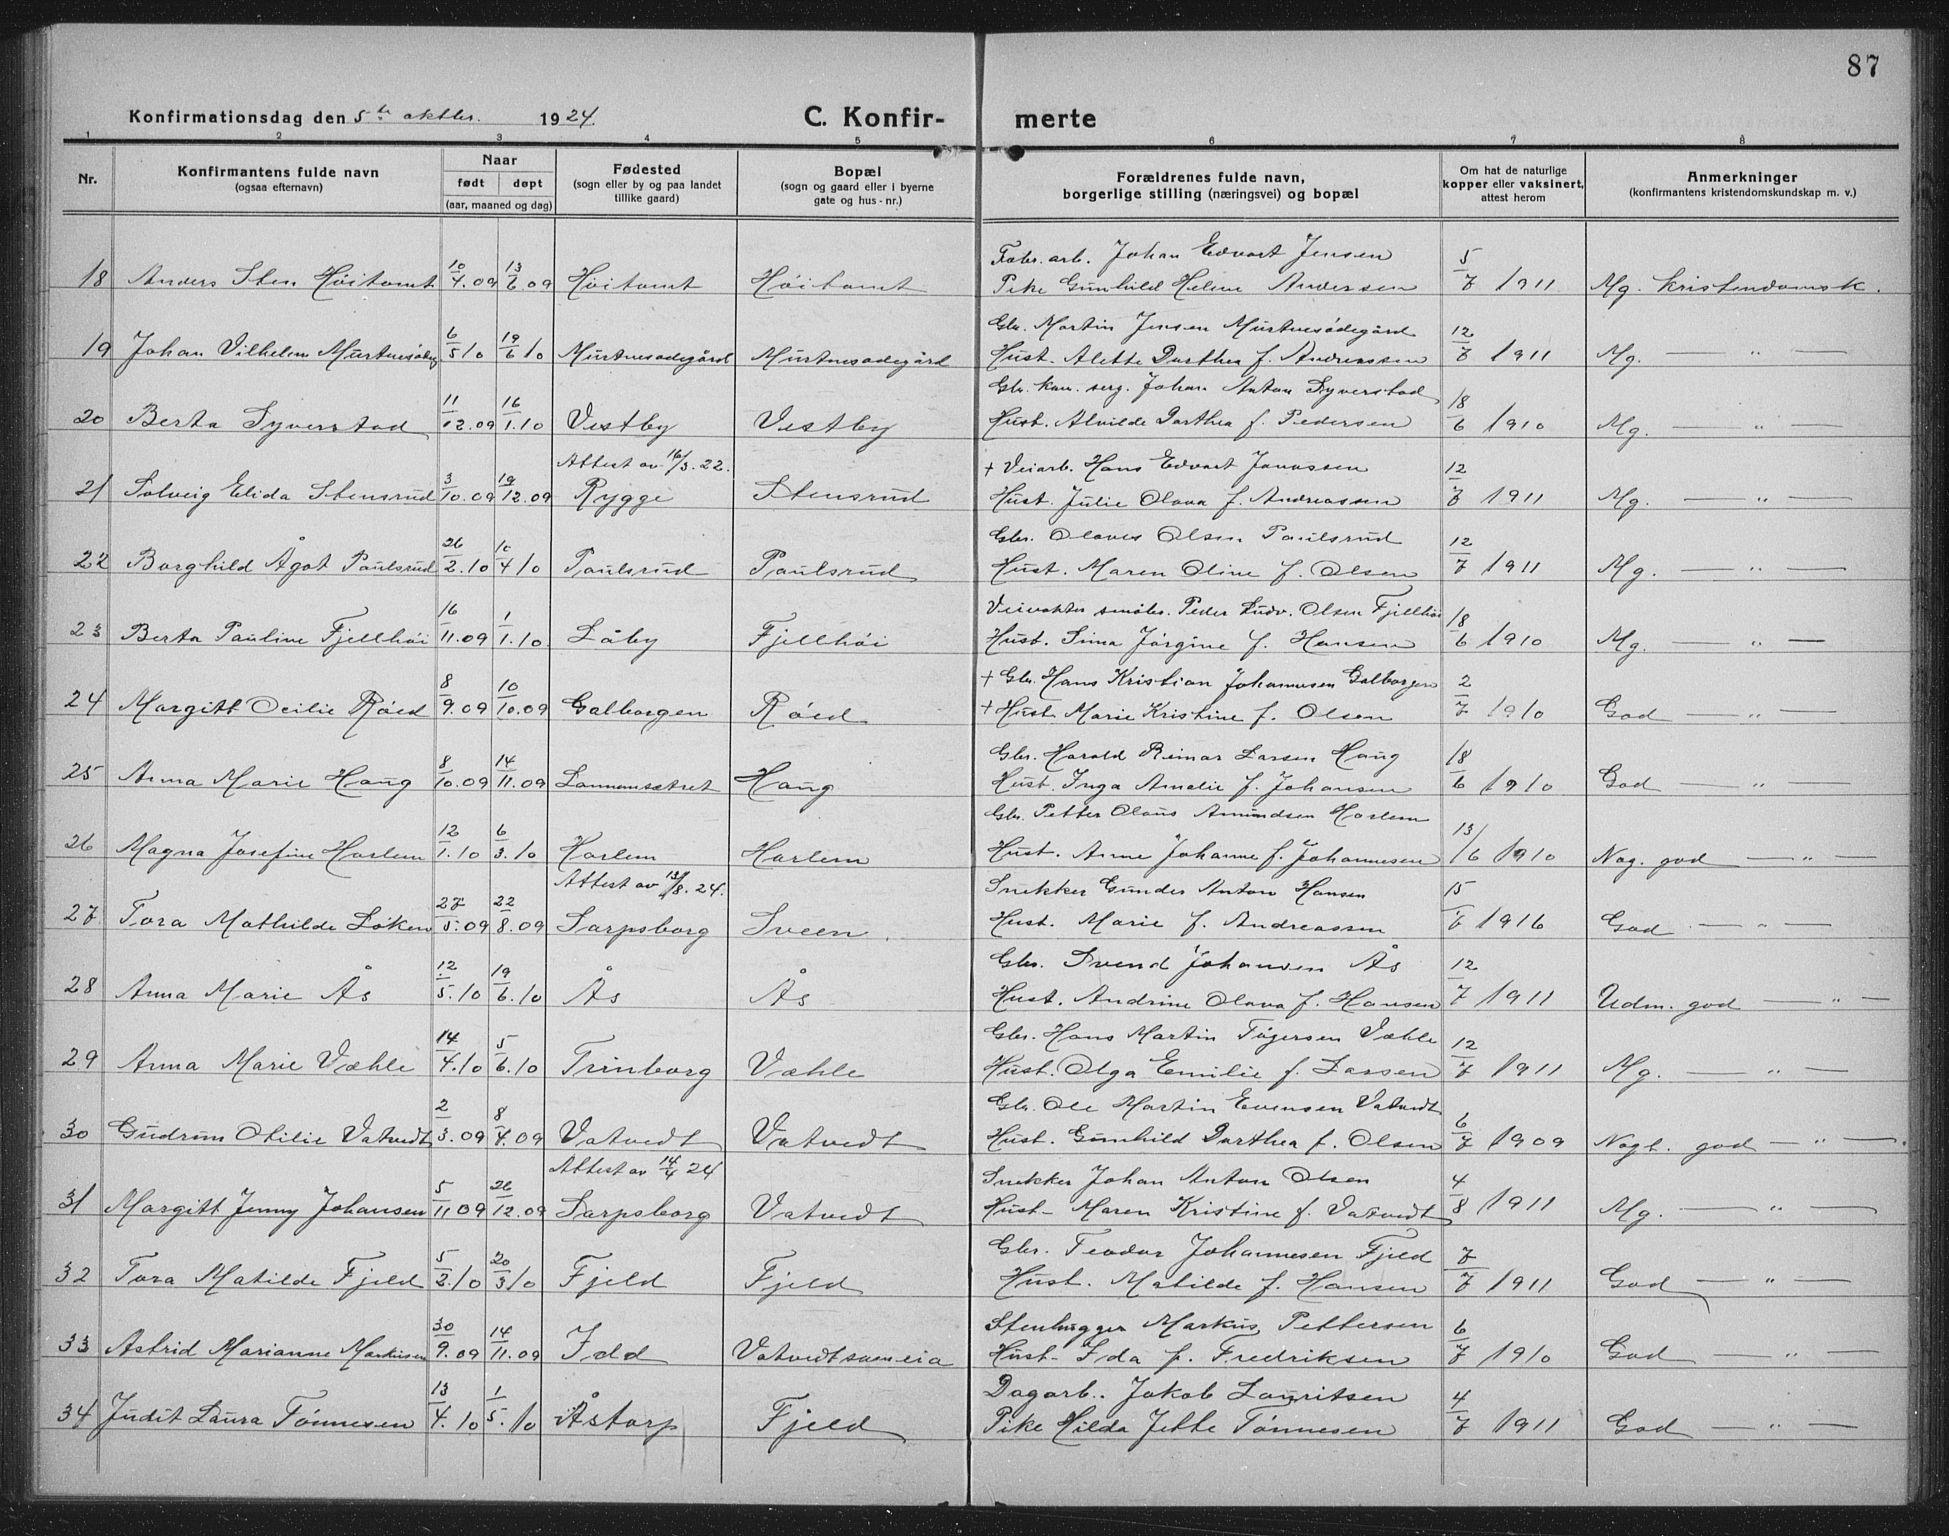 87
Konfirmationsdag den 5te oktbr. 1924.
C. Konfirmerte
1 2 3 4 5 6 7 8
Nr. | Konfirmantens fulde navn (ogsaa efternavn) | Naar født døpt (aar, maaned og dag) | Fødested (sogn eller by og paa landet tillike gaard) | Bopæl (sogn og gaard eller i byerne gate og hus-nr.) | Forældrenes fulde navn, borgerlige stilling (næringsvei) og bopæl | Om hat de naturlige kopper eller vaksinert, attest herom | Anmerkninger (konfirmantens kristendomskundskap m. v.)
Fabr. arb. Johan Edvart Jensen
18 Anders Sten Høitomt 10/4.09 13/6.09 Høitomt Høitomt Pike Gunhild Heline Andersen 5/7 1911 Mg. kristendomsk.
Gbr. Martin Jensen Murtnesødegård
19 Johan Vilhelm Murtnesødeg 6/5 10 19/6 10 Murtnesødegård Murtnesødegård Hust. Alette Dorthea f. Andreassen 12/7 1911 Mg. — " —
Gbr. kan. serg. Johan Anton Syverstad
20 Berta Syverstad 11/12.09 16/1.10 Vestby Vestby Hust. Alvilde Dorthea f. Pedersen 18/6 1910 Mg. — " —
Attest av 16/3.22. + Veiarb. Hans Edvart Jonassen
21 Solveig Elida Stensrud 3/10.09 19/12.09 Rygge Stensrud Hust. Julie Olava f. Andreassen 12/7 1911 Mg. — " —
Gbr. Olaves Olsen Paulsrud
22 Borghild Ågot Paulsrud 26/2.10 10/4 10 Paulsrud Paulsrud Hust. Maren Oline f. Olsen 12/7 1911 Mg. — " —
Veivokter småbr. Peder Ludv. Olsen Fjellhøi
23 Berta Pauline Fjellhøi 16/11.09 1/1.10. Låby Fjellhøi Hust. Sina Jørgine f. Hansen 18/6 1910 Mg. — " —
+ Gbr. Hans Kristian Johannesen Galborgen
24 Margitt Ocilie Røed 8/9.09 10/10.09 Galborgen Røed + Hust Marie Kristine f. Olsen 2/7 1910 God — " —
Gbr. Harald Reinar Larsen Haug
25 Anna Marie Haug 8/10.09 14/11.09 Lannemsætret Haug Hust. Inga Amalie f. Johansen 18/6 1910 God — "
Gbr. Petter Olaus Amundsen Horlem
26 Magna Josefine Horlem 12/1.10 6/3.10 Horlem Horlem Hust. Anne Johanne f. Johannesen 13/6 1910 Nog. god — " —
Attest av 13/8.24. Snekker Gunder Anton Hansen
27 Tora Mathilde Løken 27/5.09 22/8.09 Sarpsborg Sveen. Hust. Marie f. Andreassen 15/6 1916 God — " —
Gbr. Svend Johansen Ås
28 Anna Marie Ås 12/5.10 19/6.10 Ås Ås Hust. Andrine Olava f. Hansen 12/7 1911 Udm. god — " —
Gbr. Hans Martin Tøgersen Væhle
29 Anna Marie Væhle 14/4.10 5/6.10 Trinborg Væhle Hust. Olga Emilie f. Larsen 12/7 1911 Mg. — " —
Gbr. Ole Martin Evensen Vatvedt
30 Gudrun Otilie Vatvedt 2/3.09 8/4.09 Vatvedt Vatvedt Hust. Gunhild Dorthea f. Olsen 6/7 1909 Nogt. god — " —
Attest av 14/4 24 Snekker Johan Anton Olsen
31 Margitt Jenny Johansen 5/11 09 26/12.09 Sarpsborg Vatvedt Hust- Maren Kristine f. Vatvedt 4/8 1911 Mg. — " —
Gbr. Teodor Johannesen Fjeld
32 Tora Matilde Fjeld 5/2.10 20/3 10 Fjeld Fjeld Hust. Matilde f. Hansen 7/7 1911 God — " —
Stenhugger Markus Pettersen
33 Astrid Marianne Markusen 30/9.09 14/11.09 Idd Vatvedtsveneia Hust- Ida f. Fredriksen 6/7 1910 God — " —
Dagarb. Jakob Lauritsen
34 Judit Laura Tønnesen 13/4.10 1/5.10 Åstorp Fjeld Pike Hilda Jette Tønnesen 4/7 1911 God — " —